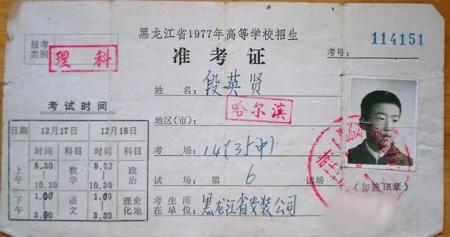 黑龙江省1977年高等学校招生
准考证
考号：
114151
报考类别
理科
姓名：段英贤
地区(市)：哈尔滨
考场：
试场：第6试场
(加盖印章)
考生所在单位：黑龙江省安装公司
考试时间
日期 12月17日 12月18日
时间 科目 时间 科目
上午 8.30 — 10.30 数学 8.30 — 10.30 政治
下午 1.00 — 3.00 语文 1.00 — 3.30 理化 史地